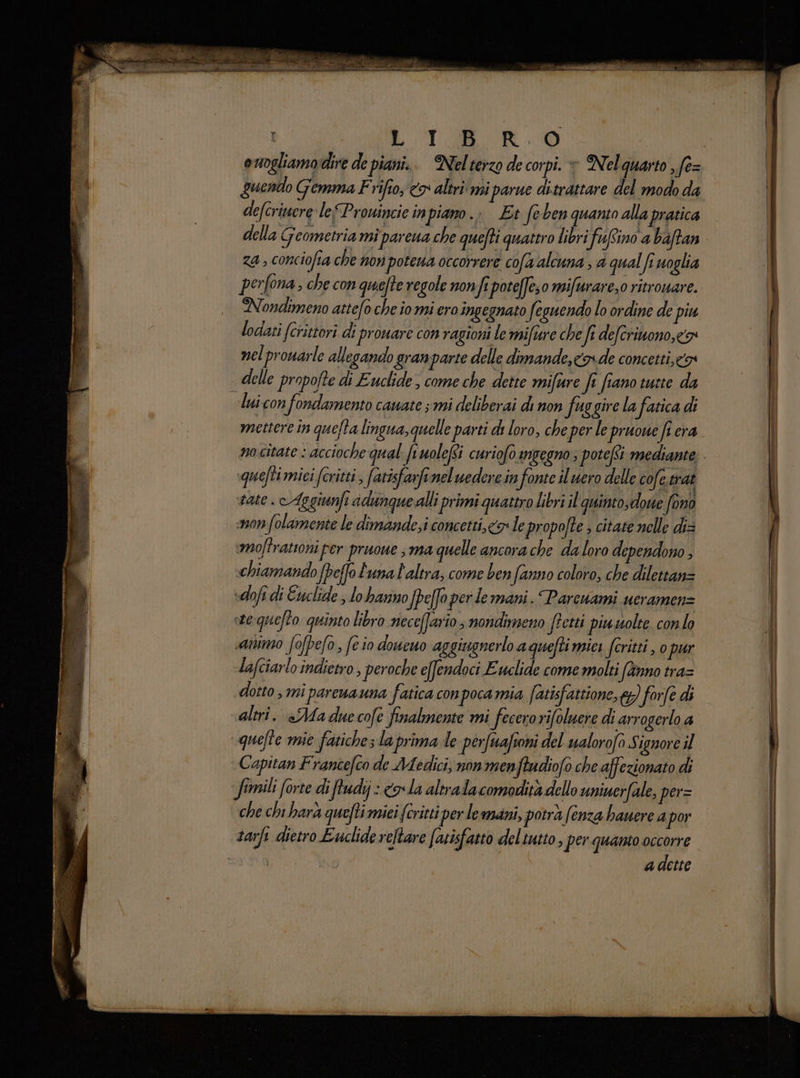 LIBRO
o uogliamo dire de piani. Nel terzo de corpi. Nel quarto, ſe=
guendo Gemma Friſio, & altri mi parue di trattare del modo da
deſcriuere le Prouincie in piano. Et ſe ben quanto alla pratica
della Geometria mi pareua che queſti quattro libri fuſsino a baſtan
za, concioſia che non poteua occorrere coſa alcuna, a qual ſi uoglia
perſona, che con queſte regole non ſi poteſſe, o miſurare, o ritrouare.
Nondimeno atteſo che io mi ero ingegnato ſeguendo lo ordine de piu
lodati ſcrittori di prouare con ragioni le miſure che ſi deſcriuono, &
nel prouarle allegando gran parte delle dimande, & de concetti, &
delle propoſte di Euclide, come che dette miſure ſi ſiano tutte da
lui con fondamento cauate; mi deliberai di non fuggire la fatica di
mettere in queſta lingua, quelle parti di loro, che per le pruoue ſi era
no citate: accioche qual ſi uoleſsi curioſo ingegno, poteſsi mediante
queſti miei ſcritti, ſatisfarſi nel uedere in fonte il uero delle coſe trat
tate. Aggiunſi adunque alli primi quattro libri il quinto, doue ſono
non ſolamente le dimande, i concetti, & le propoſte, citate nelle di=
moſtrationi per pruoue, ma quelle ancora che da loro dependono,
chiamando ſpeſſo l'una l'altra, come ben ſanno coloro, che dilettan=
doſi di Euclide, lo hanno ſpeſſo per le mani. Pareuami ueramen=
te queſto quinto libro neceſſario, nondimeno ſtetti piu uolte con lo
animo ſoſpeſo, ſe io doueuo aggiugnerlo a queſti miei ſcritti, o pur
laſciarlo indietro, peroche eſſendoci Euclide come molti ſanno tra=
dotto, mi pareua una fatica con poca mia ſatisfattione, & forſe di
altri. Ma due coſe finalmente mi fecero riſoluere di arrogerlo a
queſte mie fatiche; la prima le perſuaſioni del ualoroſo Signore il
Capitan Franceſco de Medici, non men ſtudioſo che affezionato di
ſimili ſorte di ſtudij: & la altra la comodità dello uniuerſale, per=
che chi harà queſti miei ſcritti per le mani, potrà ſenza hauere a por
tarſi dietro Euclide reſtare ſatisfatto del tutto, per quanto occorre
a dette